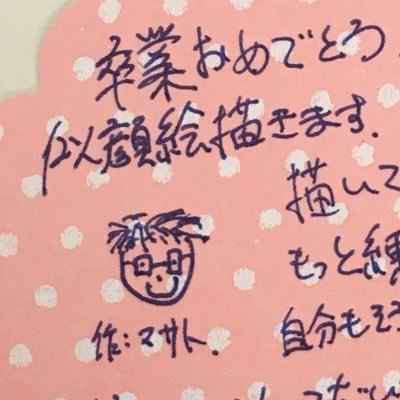 卒業おめでとう
似顔絵描きます.
描いて
もっと練
自分もそろ
作:マサト.